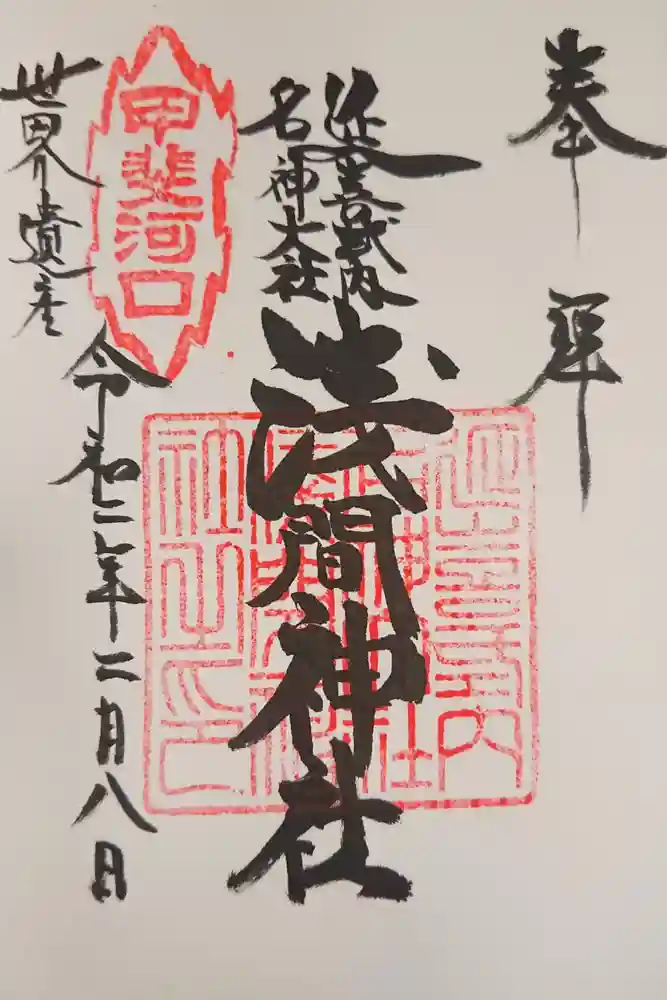 奉拝
延喜式内
名神大社
浅間神社
甲斐河口
世界遺産
令和二年二月八日